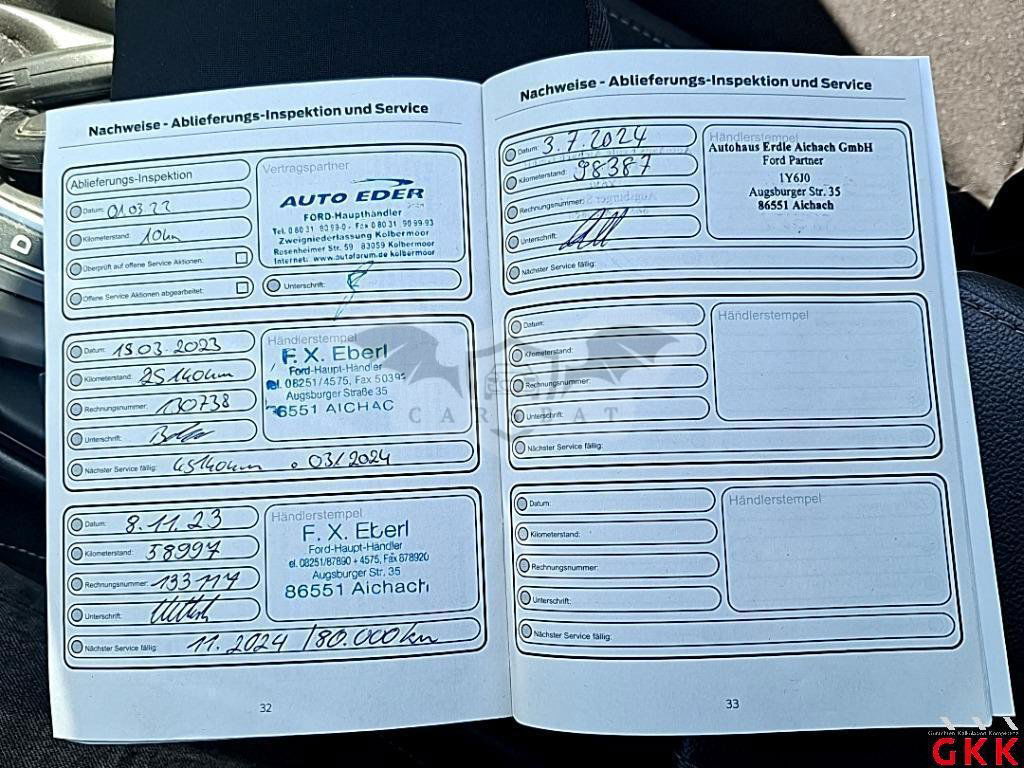 Nachweise - Ablieferungs-Inspektion und Service
Ablieferungs-Inspektion
Datum: 01.03.22
Kilometerstand: 10km
Überprüft auf offene Service Aktionen:
Offene Service Aktionen abgearbeitet:
Vertragspartner
AUTO EDER
FORD-Haupthändler
Zweigniederlassung Kolbermoor
Rosenheimer Str. 59 83059 Kolbermoor
Internet: www.autoforum.de kolbermoor
Unterschrift:
Datum: 13.03.2023
Kilometerstand: 25140km
Rechnungsnummer: 130738
Unterschrift:
Nächster Service fällig: 45140km o 03/2024
Händlerstempel
F. X. Eberl
Ford-Haupt-Händler
el. 08251/4575, Fax 5039
Augsburger Straße 35
86551 AICHAC
Datum: 8.11.23
Kilometerstand: 58997
Rechnungsnummer: 133114
Unterschrift:
Nächster Service fällig: 11.2024 / 80.000km
Händlerstempel
F. X. Eberl
Ford-Haupt-Händler
el. 08251/87890 + 4575, Fax 878920
Augsburger Str. 35
86551 Aichach
32
Nachweise - Ablieferungs-Inspektion und Service
Datum: 3.7.2024
Kilometerstand: 98387
Rechnungsnummer:
Unterschrift:
Nächster Service fällig:
Händlerstempel
Autohaus Erdle Aichach GmbH
Ford Partner
1Y6J0
Augsburger Str. 35
86551 Aichach
Datum:
Kilometerstand:
Rechnungsnummer:
Unterschrift:
Nächster Service fällig:
Händlerstempel
Datum:
Kilometerstand:
Rechnungsnummer:
Unterschrift:
Nächster Service fällig:
Händlerstempel
33
D
CAROBAT
GKK